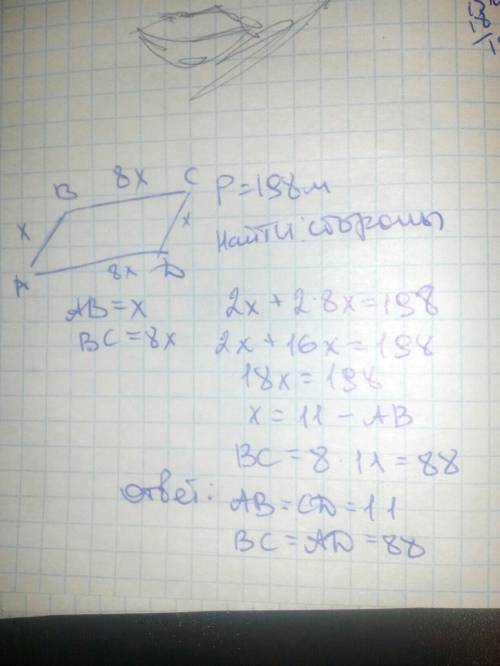 B 8x C
x x
A 8x D
P=198м
Найти: стороны
AB=x
BC=8x
2x+2·8x=198
2x+16x=198
18x=198
x=11-AB
BC=8·11=88
Ответ: AB=CD=11
BC=AD=88